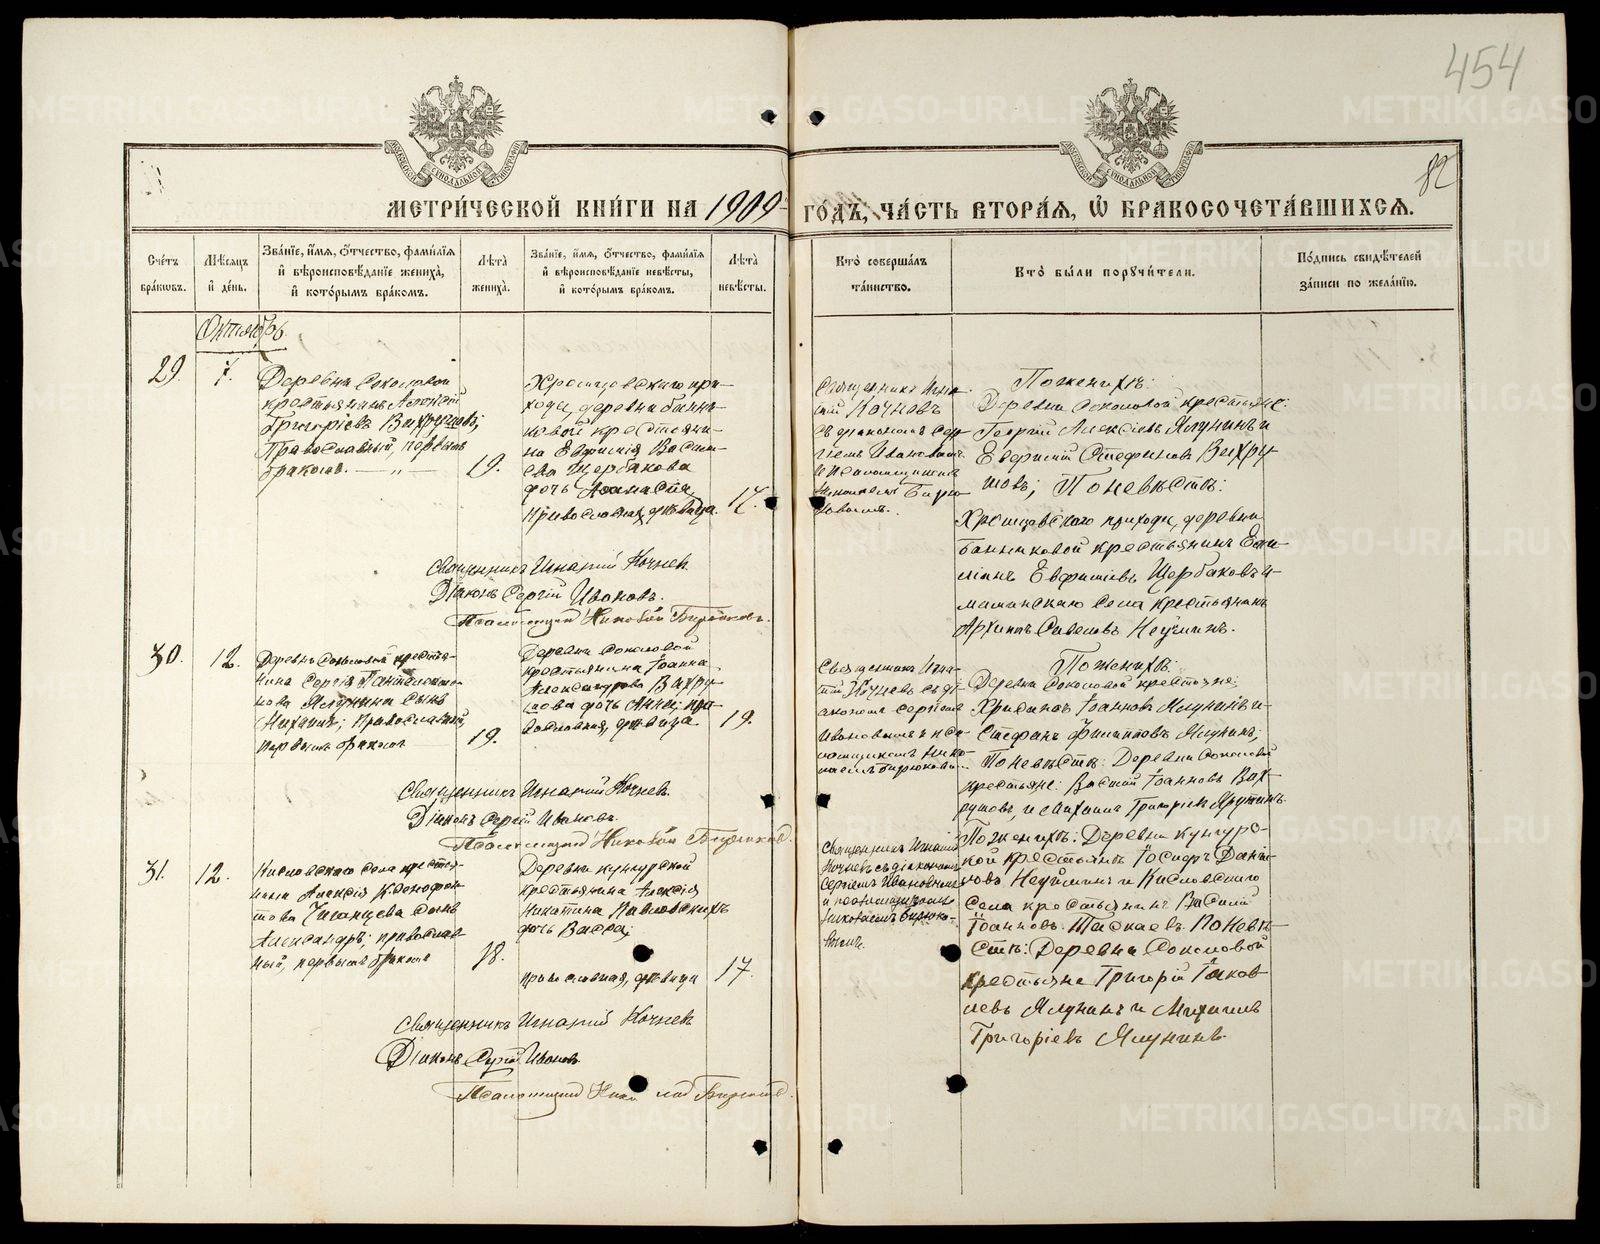 454
82
МЕТРИ́ЧЕСКОЙ КНИ́ГИ НА 1909 ГО́ДЪ, ЧА́СТЬ ВТОРА́Я, Ѽ БРАКОСОЧЕТА́ВШИХСЯ.
Сче́тъ бра́ковъ.
Мѣ́сяцъ и҆ де́нь.
Зва́нїе, и҆́мя, ѻ҆́тчество, фами́лїя и҆ вѣроисповѣ́данїе жениха̀, и҆ кото́рымъ бра́комъ.
Лѣ́та жениха̀.
Зва́нїе, и҆́мя, ѻ҆́тчество, фами́лїя и҆ вѣроисповѣ́данїе невѣ́сты, и҆ кото́рымъ бра́комъ.
Лѣ́та невѣ́сты.
Кто̀ соверша́лъ та́инство.
Кто̀ бы́ли порꙋчи́тели.
По́дпись свидѣ́телей за́писи по жела́нїю.
Октябрь
29.
7.
Деревни Соколовой
крестьянинъ Алексѣй
Григоріевъ Вахрушевъ;
Православный, первымъ
бракомъ. — „ —
19.
Хромцовскаго при-
хода, деревни Банни-
ковой крестьяни-
на Евфимія Василь-
ева Щербакова
дочь Анастасія
православная, дѣвица.
17.
Священникъ Игна-
тій Кочневъ
съ діакономъ Сер-
гіемъ Ивановымъ
и псаломщикомъ
Николаемъ Бирю-
ковымъ.
По женихѣ:
Деревни Соколовой крестьяне:
Георгій Алексіевъ Ялунинъ и
Евфимій Стефановъ Вахру-
шовъ; По невѣстѣ:
Хромцовскаго прихода, деревни
Банниковой крестьянинъ Еме-
ліанъ Евфиміевъ Щербаковъ и
Маминскаго села крестьянинъ
Архипъ Савеловъ Неуйминъ.
Священникъ Игнатій Кочнев.
Діаконъ Сергій Ивановъ.
Псаломщикъ Николай Бирюковъ.
30.
12.
Деревни Соколовой крестья-
нина Сергія Пантелеймо-
нова Ялунина сынъ
Михаилъ; Православный,
первымъ бракомъ
19.
Деревни Соколовой
крестьянина Іоанна
Александрова Вахру-
шова дочь Анна; пра-
вославная, дѣвица.
19.
Священникъ Игна-
тій Кочневъ съ ді-
акономъ Сергіемъ
Ивановымъ и пса-
ломщикомъ Нико-
лаемъ Бирюковы-
По женихѣ:
Деревни Соколовой крестьяне:
Іоанновъ Ялунинъ и
Стефанъ Филипповъ Ялунинъ;
По невѣстѣ: Деревни Соколовой
крестьяне: Василій Іоанновъ Вах-
рушовъ, и Михаилъ Григоріевъ Ялунинъ.
Священникъ Игнатій Кочнев.
Діаконъ Сергій Ивановъ.
Псаломщикъ Николай Бирюковъ.
31.
12.
Кисловскаго села крестья-
нина Алексія Ксенофон-
това сынъ
Александръ; православ-
ный, первымъ бракомъ
18.
Деревни Кунгурской
крестьянина Алексія
Никитина Павловскихъ
дочь Васса;
православная, дѣвица
17.
Священникъ Игнатій
Кочневъ съ діакономъ
Сергіемъ Ивановымъ
и псаломщикомъ
Николаемъ Бирюко-
вымъ.
По женихѣ: Деревни Кунгурс-
кой крестьянинъ Іосифъ Дани-
ловъ Неуйминъ и Кисловскаго
села крестьянинъ Василій
Іоанновъ Таскаевъ. По невѣ-
стѣ: Деревни Соколовой
крестьяне Григорій Іаков-
левъ Ялунинъ и Михаилъ
Григоріевъ Ялунинъ.
Священникъ Игнатій Кочнев
Діаконъ Сергій Ивановъ
Псаломщикъ Николай Бирюковъ.
METRIKI.GASO-URAL.RU